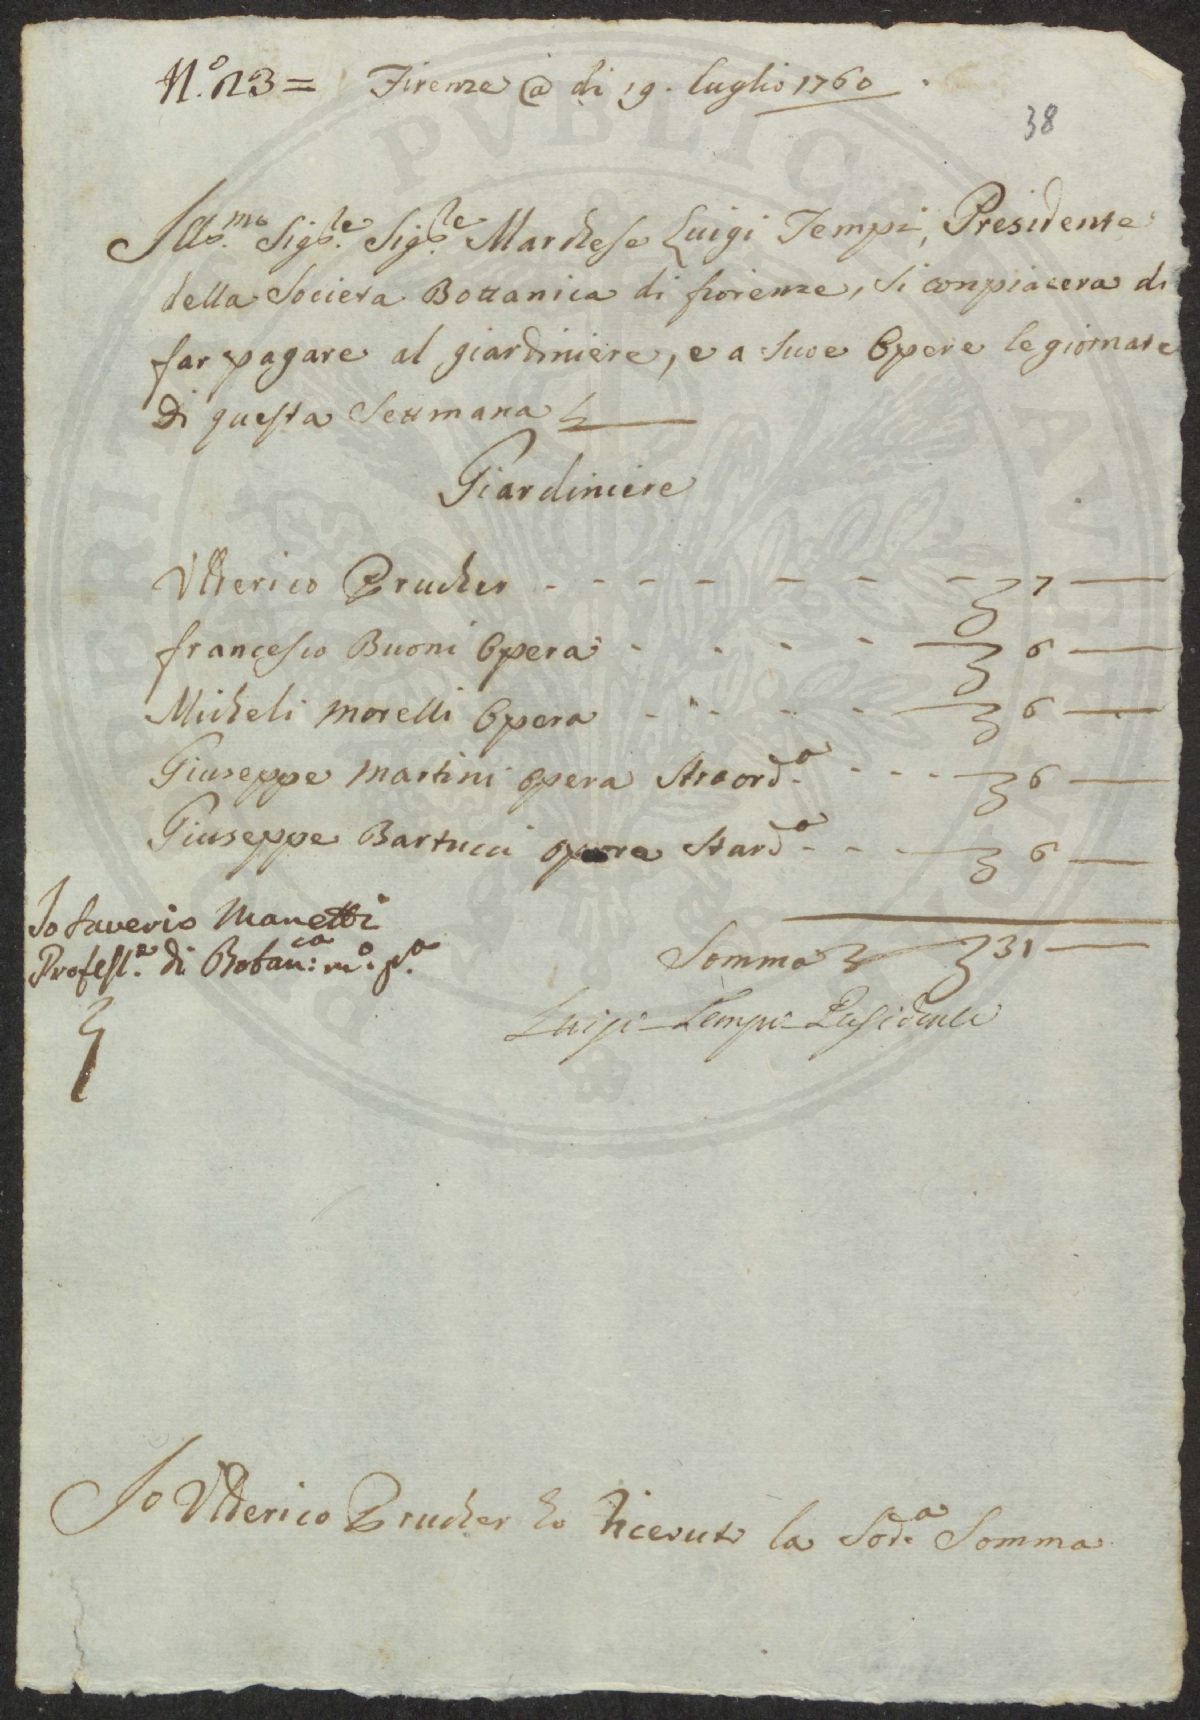 N.o 23 = Firenze @ di 19. luglio 1760
38
Ill.mo Sig.re Sig.re Marchese Luigi Tempi, Presidente
della Societa Bottanica di fiorenze, si conpiacera di
far pagare al giardiniere, e a Suoe Opere le giornate
di questa Settimana
Giardiniere
Ulderico Prucher - - - - - - - 7 —
francesco Buoni Opera - - - - 6 —
Micheli Morelli Opera - - - - - 6 —
Giuseppe Martini opera Straord.a - - - 6 —
Giuseppe Bartucci opera Stard.a - - - 6 —
Io Saverio Manetti
Profess.e di Botan:ca m.o p.a
Somma 31 —
Luigi Tempi Presidente
Io Ulderico Prucher ho riceuto la Sod.a Somma